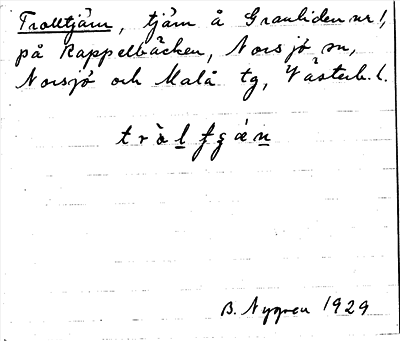 Trolltjärn, tjärn å Granliden nr 1,
på Rappelbäcken, Norsjö sn,
Norsjö och Malå tg, Västerb. l.
B. Nygren 1929